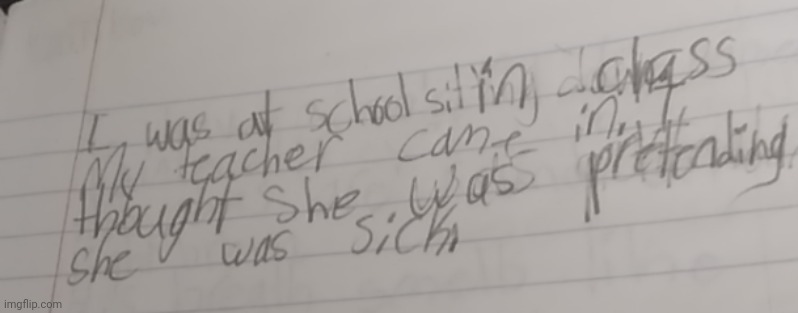 I was at school sitting class
My teacher came in. I
thought she was pretending
she was sick
imgflip.com